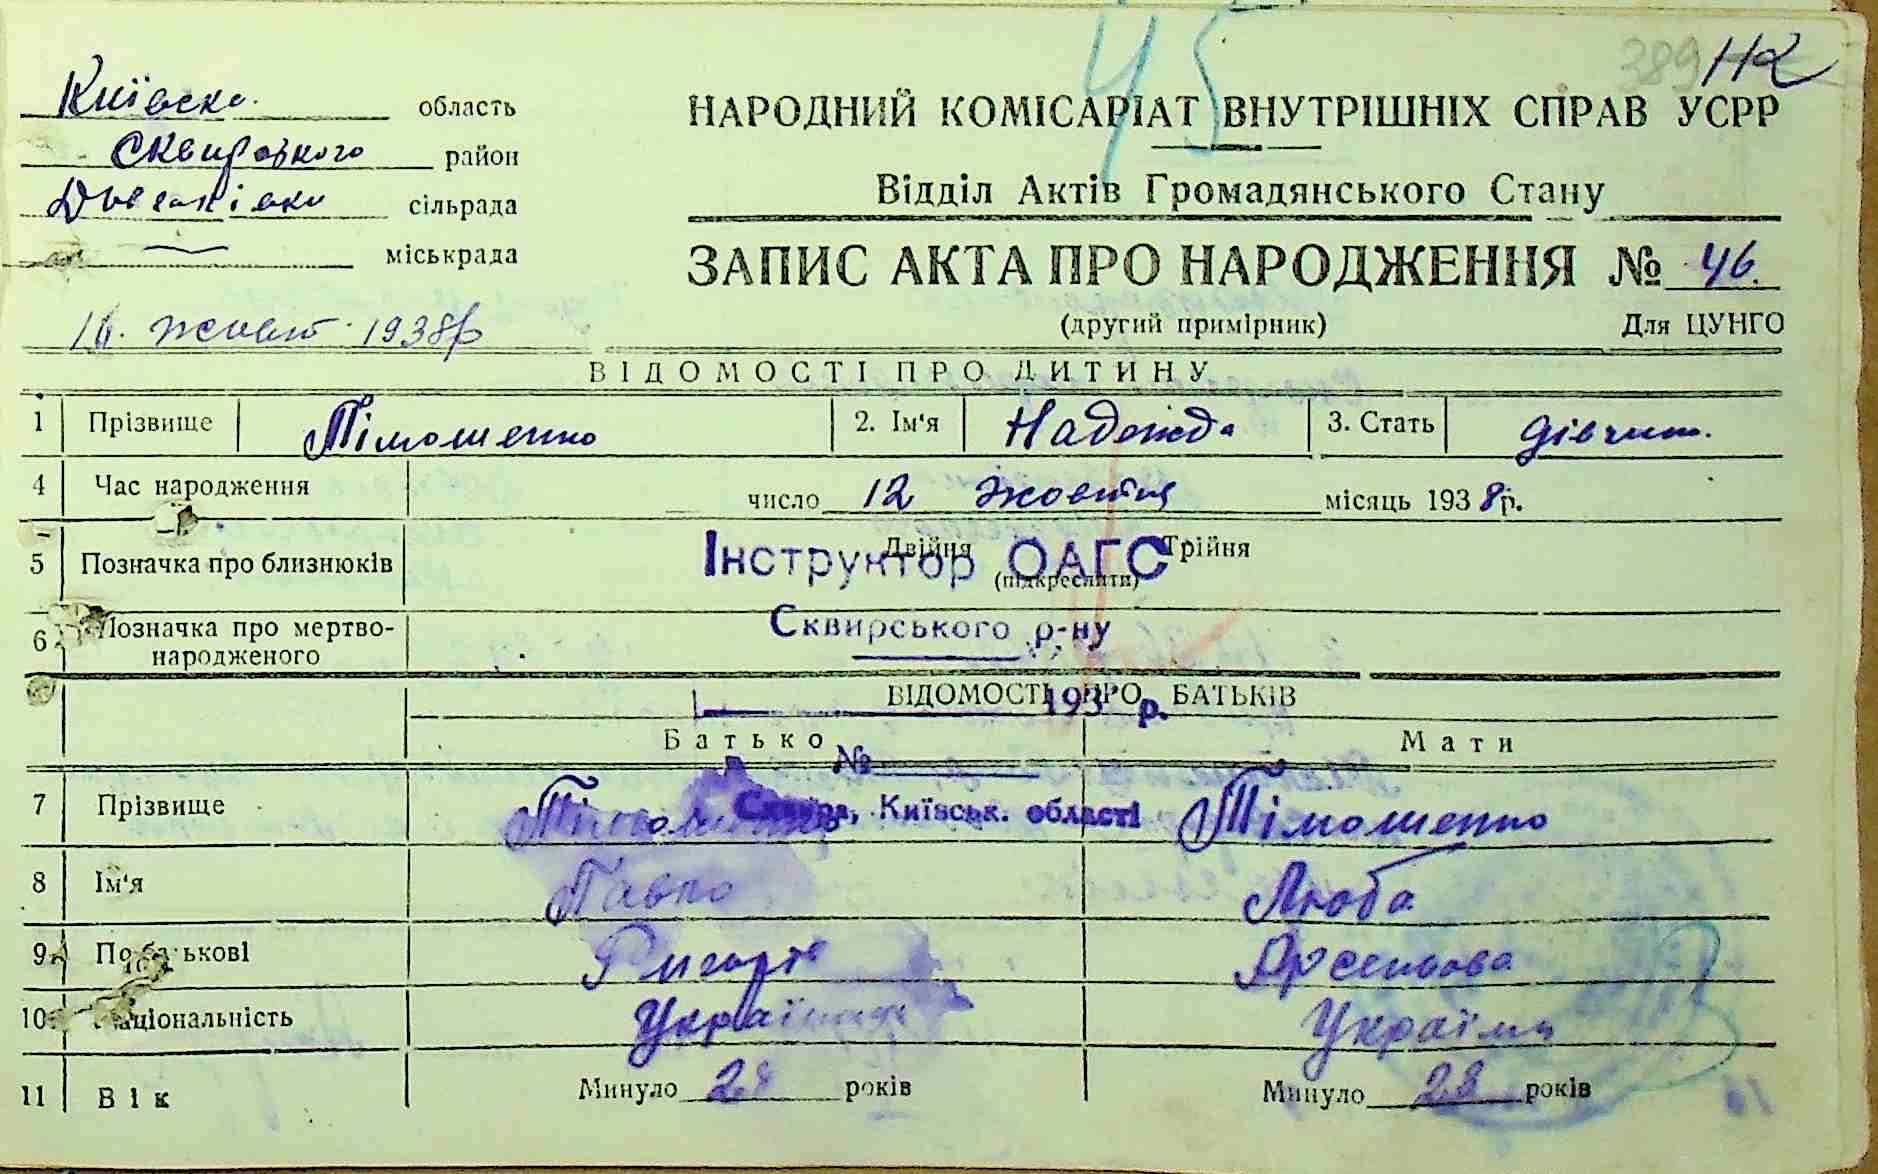 45
389
Київська область
НАРОДНИЙ КОМІСАРІАТ ВНУТРІШНІХ СПРАВ УСРР
Сквирського район
Відділ Актів Громадянського Стану
сільрада
міськрада
ЗАПИС АКТА ПРО НАРОДЖЕННЯ № 46.
(другий примірник) Для ЦУНГО
16. жовт 1938р
ВІДОМОСТІ ПРО ДИТИНУ
1 Прізвище Тімошенко 2. Ім'я Надежда 3. Стать дівчин.
4 Час народження число 12 жовтня місяць 1938р.
5 Позначка про близнюків Двійня Трійня
(підкреслити)
Інструктор ОАГС
6 Позначка про мертво-
народженого
Сквирського р-ну
ВІДОМОСТІ ПРО БАТЬКІВ
193 р.
Батько Мати
№
7 Прізвище Тімошенко Тімошенко
Сквира, Київськ. області
8 Ім'я Павло Люба
9 По батькові Арсеньова
10 Національність Українець Україн
11 Вік Минуло 28 років Минуло 28 років